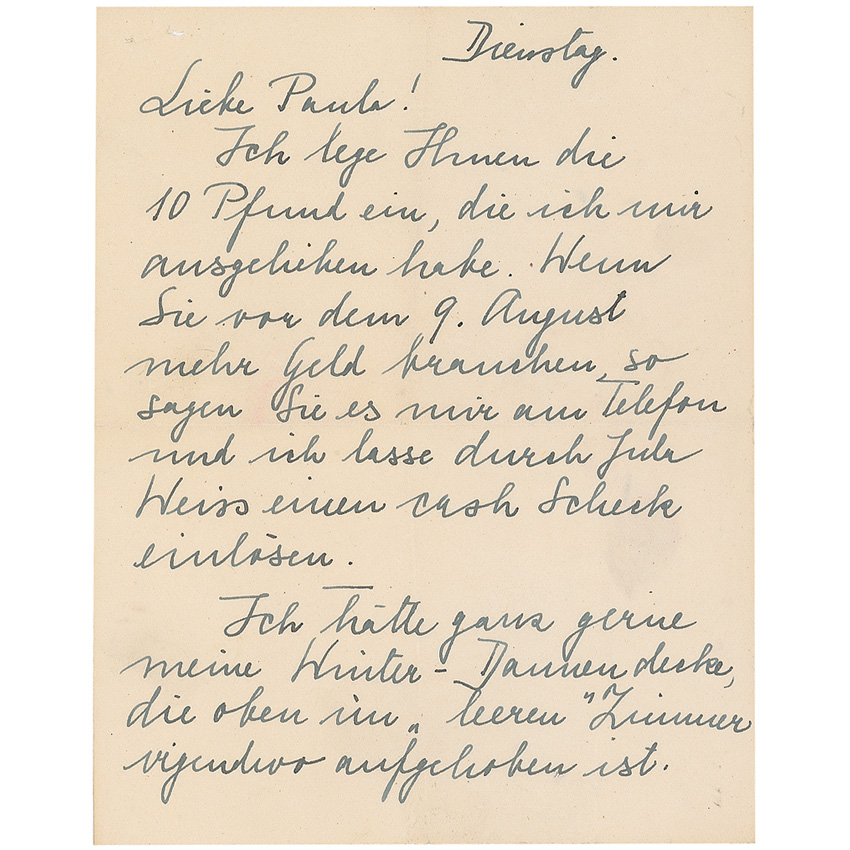 Dienstag.
Liebe Paula!
Ich lege Ihnen die
10 Pfund ein, die ich mir
ausgeliehen habe. Wenn
Sie vor dem 9. August
mehr Geld brauchen, so
sagen Sie es mir am Telefon
und ich lasse durch Jula
Weiss einen cash Scheck
einlösen.
Ich hätte ganz gerne
meine Winter-Daunendecke,
die oben im „leeren" Zimmer
irgendwo aufgehoben ist.